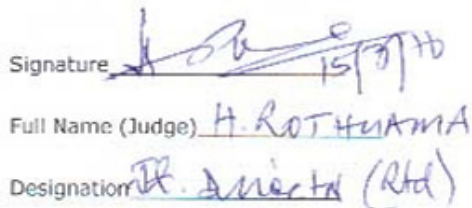 Signature 15/3/
Full Name (Judge) H. ROTHUAMA
Designation (Rtd)